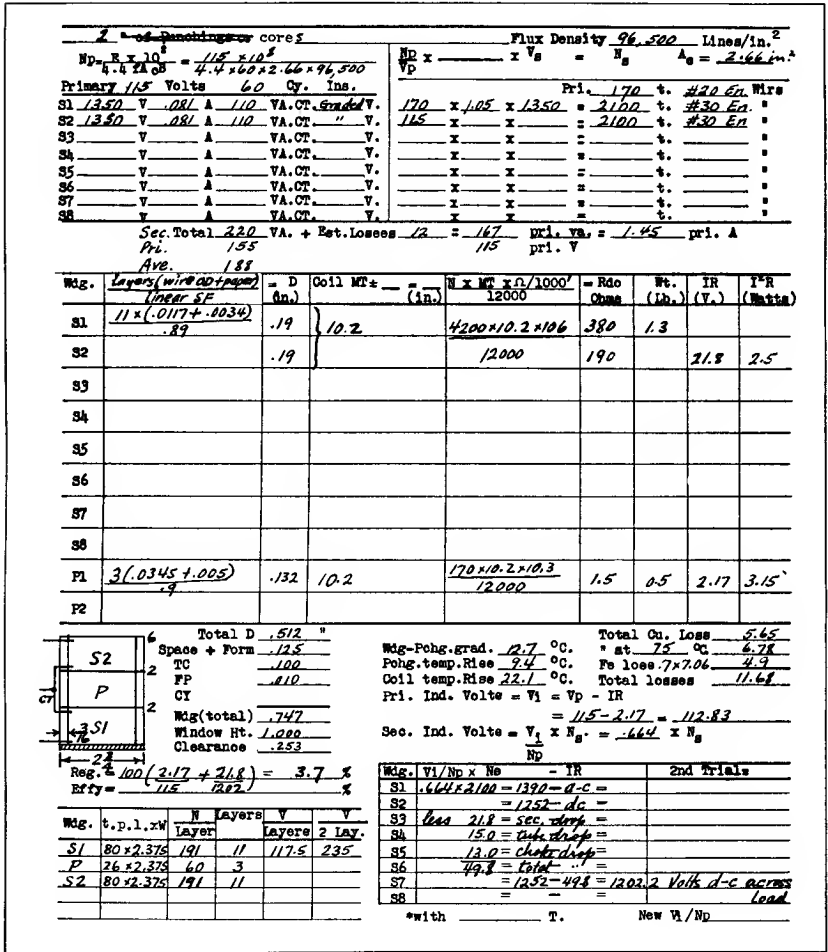 2 # of Punchings or cores Flux Density 96,500 Lines/in.²
Np = E x 10⁸ / 4.4 fAcB = 115 x 10⁸ / 4.4 x 60 x 2.66 x 96,500 Np/Vp x ______ x Vs = Ns Ac = 2.66 in.²
Primary 115 Volts 60 Cy. Ins. Pri. 170 t. #20 En Wire
S1 1350 V .081 A 110 VA.CT. Graded V. 170 x 1.05 x 1350 = 2100 t. #30 En. "
S2 1350 V .081 A 110 VA.CT. " V. 115 x x = 2100 t. #30 En "
S3 V A VA.CT. V. x x = t. "
S4 V A VA.CT. V. x x = t. "
S5 V A VA.CT. V. x x = t. "
S6 V A VA.CT. V. x x = t. "
S7 V A VA.CT. V. x x = t. "
S8 V A VA.CT. V. x x = t. "
Sec. Total 220 VA. + Est.Losses 12 = 167 pri. va. = 1.45 pri. A
Pri. 155 115 pri. V
Ave. 188
Wdg. Layers (wire OD + paper) / linear SF = D (in.) Coil MT ± __ = __ (in.) N x MT x Ω/1000' / 12000 = Rdc Ohms Wt. (Lb.) IR (V.) I²R (Watts)
S1 11 x (.0117 + .0034) / .89 .19 10.2 4200 x 10.2 x 106 380 1.3
S2 .19 12000 190 21.8 2.5
S3
S4
S5
S6
S7
S8
P1 3(.0345 + .005) / .9 .132 10.2 170 x 10.2 x 10.3 / 12000 1.5 0.5 2.17 3.15
P2
S2 P S1 CT 6 2 2 3/16 2 3/4
Total D .512 "
Space + Form .125
TC .100
FP .010
CY
Wdg(total) .747
Window Ht. 1.000
Clearance .253
Wdg-Pchg.grad. 12.7 °C. Total Cu. Loss 5.65
Pchg.temp.Rise 9.4 °C. " at 75 °C 6.78
Coil temp.Rise 22.1 °C. Fe loss .7x7.06 4.9
Total losses 11.68
Pri. Ind. Volts = Vi = Vp - IR
= 115 - 2.17 = 112.83
Sec. Ind. Volts = Vi / Np x Ns. = .664 x Ns
Reg. = 100 (2.17 / 115 + 21.8 / 1202) = 3.7 %
Effy = %
Wdg. t.p.l.xW N Layer Layers V Layers V 2 Lay.
S1 80 x 2.375 191 11 117.5 235
P 26 x 2.375 60 3
S2 80 x 2.375 191 11
Wdg. Vi/Np x Ns - IR 2nd Trials
S1 .664 x 2100 = 1390 - a-c =
S2 = 1252 - dc =
S3 less 21.8 = sec. drop =
S4 15.0 = tube drop =
S5 13.0 = choke drop =
S6 49.8 = total " =
S7 = 1252 - 49.8 = 1202.2 Volts d-c across
S8 = - = load
*with ______ T. New Vi/Np